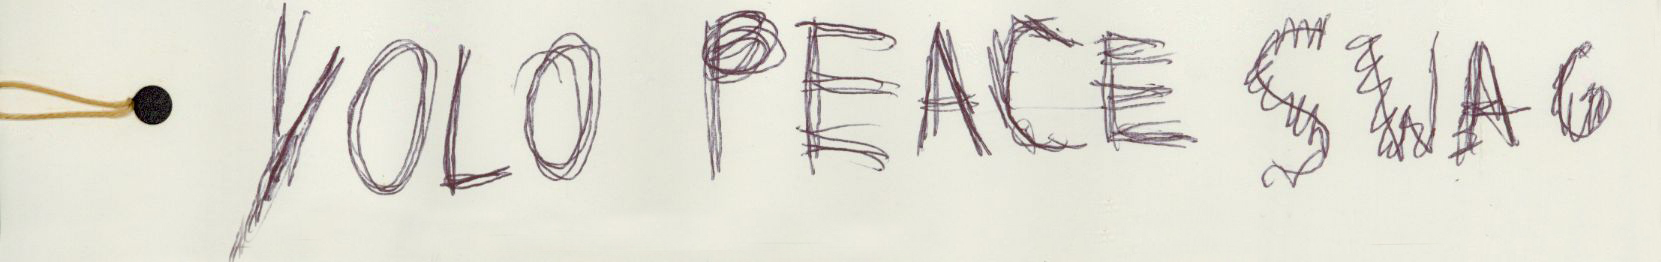 YOLO PEACE SWAG